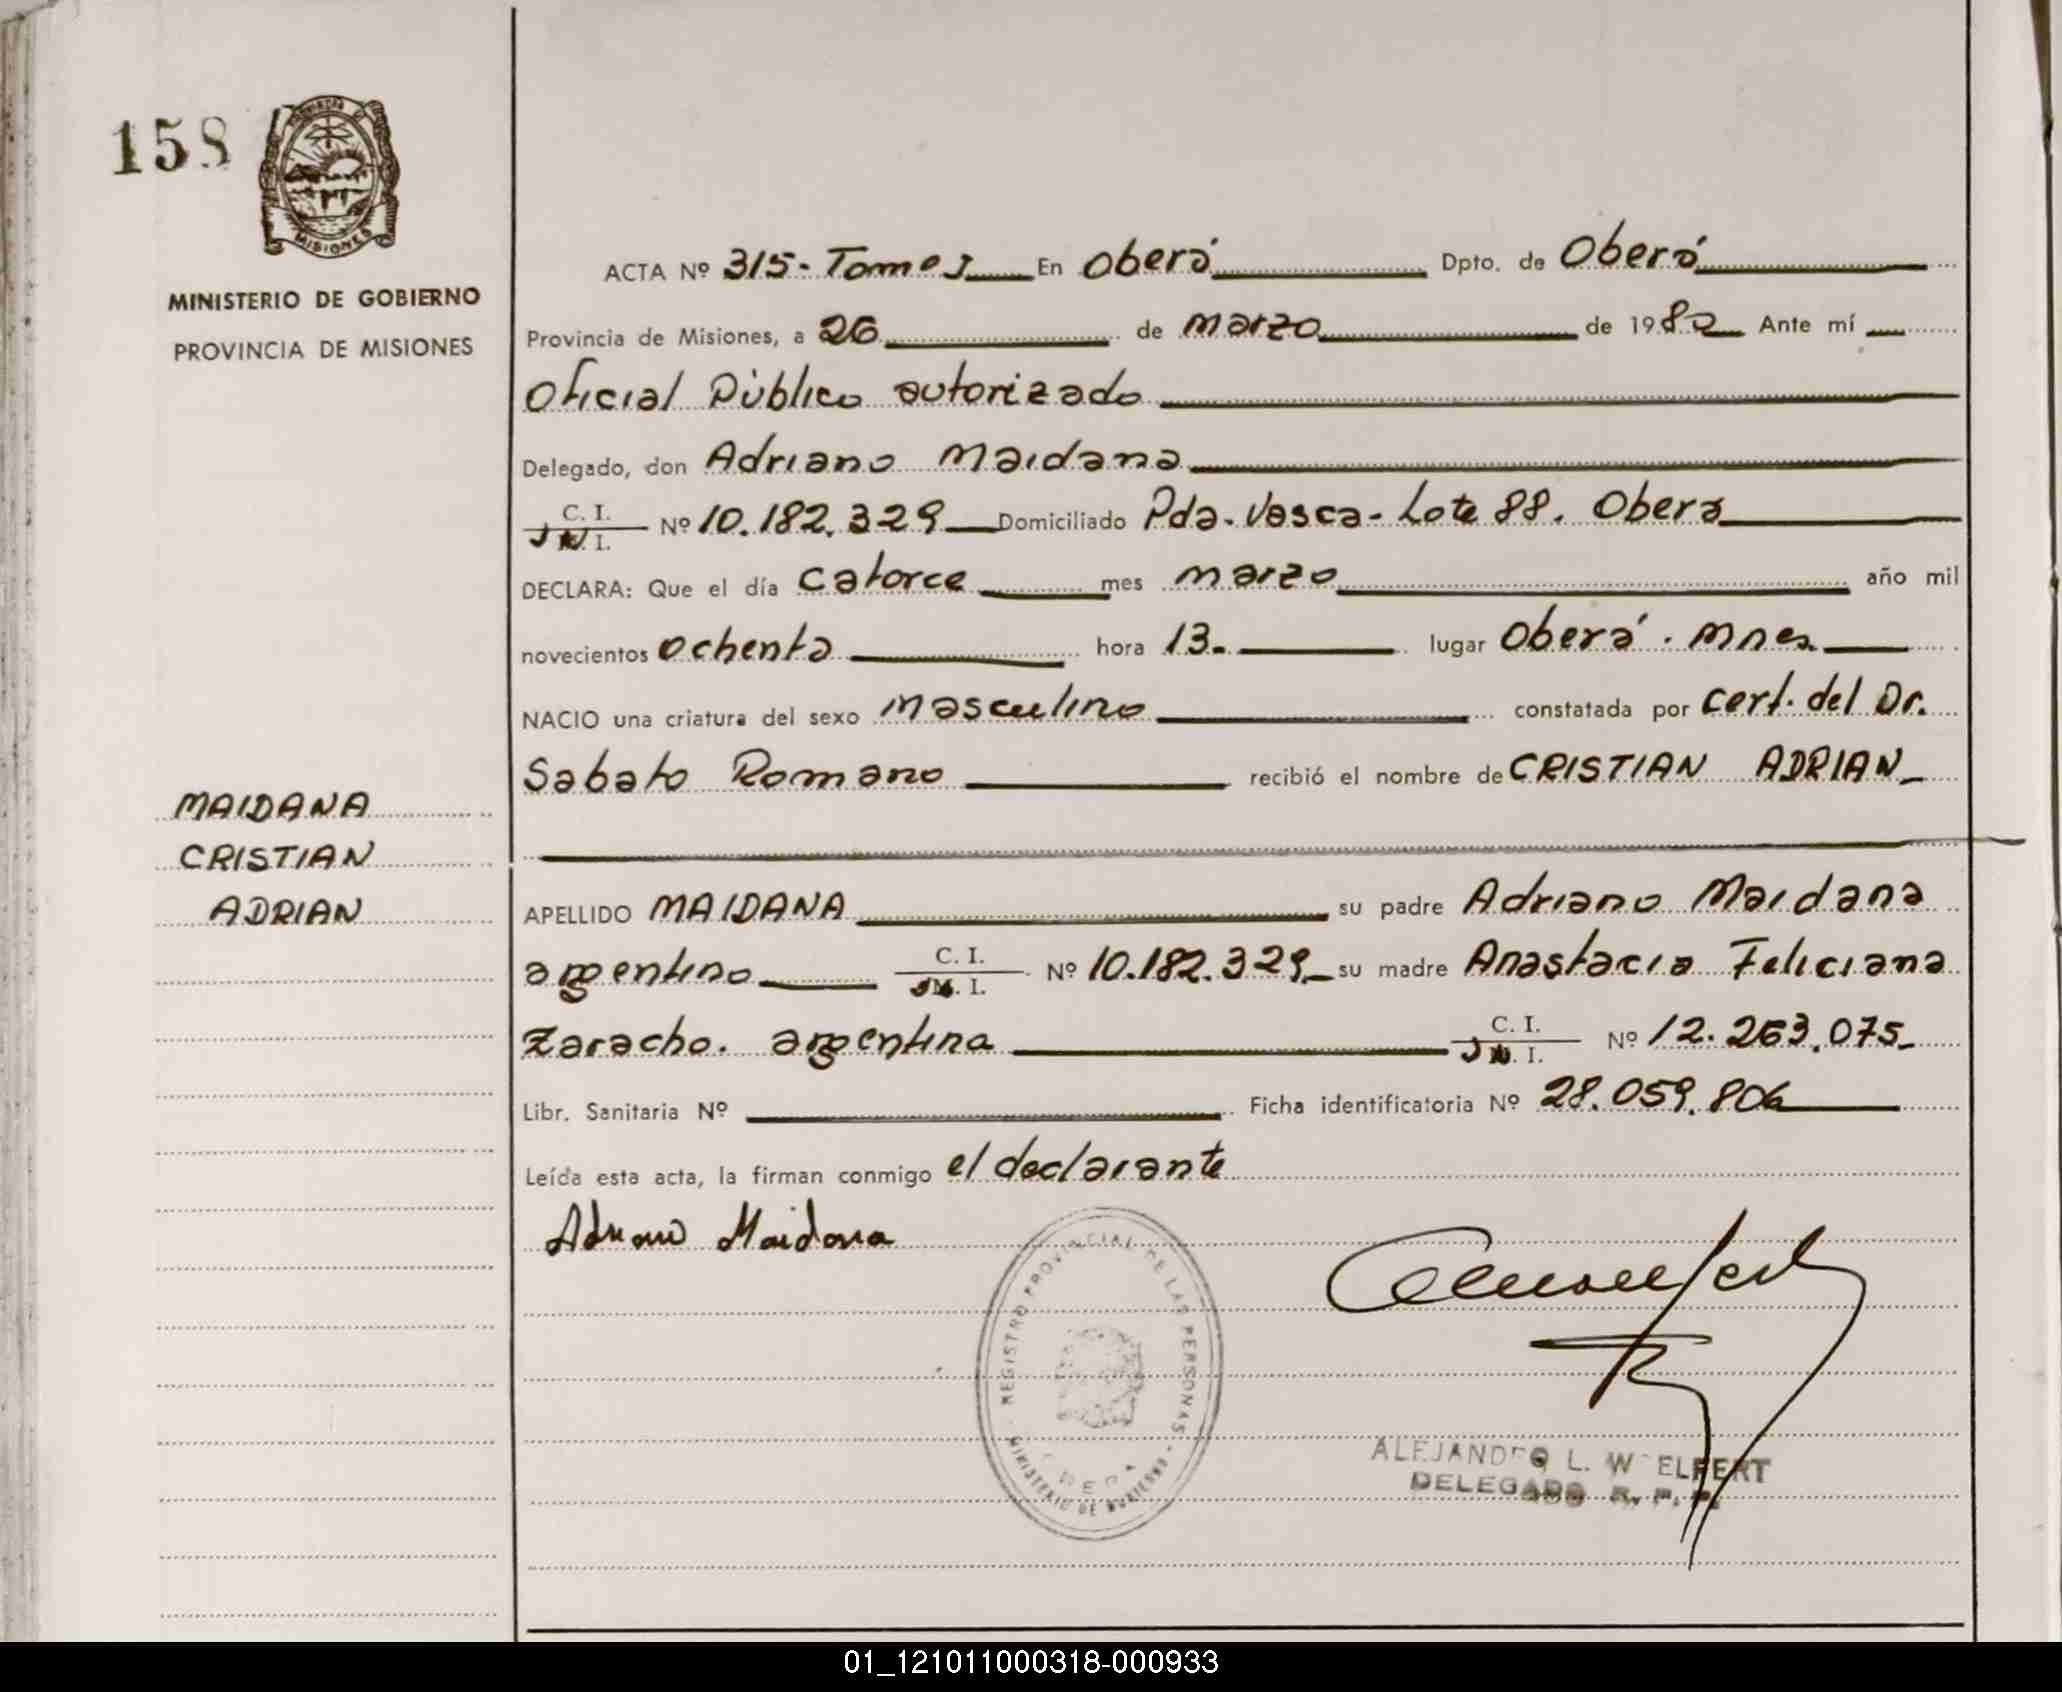 158
PROVINCIA DE
MISIONES
MINISTERIO DE GOBIERNO
PROVINCIA DE MISIONES
ACTA Nº 315- Tomo I En Oberá Dpto. de Oberá
Provincia de Misiones, a 26 de marzo de 1980 Ante mí
Oficial Público autorizado
Delegado, don Adriano Maidana
C. I.
Nº 10.182.329 Domiciliado Pda. Vasca- Lote 88. Oberá
DECLARA: Que el día catorce mes marzo año mil
novecientos ochenta hora 13. lugar Oberá. Mnes.
NACIO una criatura del sexo masculino constatada por cert. del Dr.
Sabato Romano recibió el nombre de CRISTIAN ADRIAN
MAIDANA
CRISTIAN
ADRIAN
APELLIDO MAIDANA su padre Adriano Maidana
argentino C. I. Nº 10.182.329 su madre Anastacia Feliciana
Zaracho. argentina C. I. Nº 12.263.075
Libr. Sanitaria Nº Ficha identificatoria Nº 28.059.806
Leída esta acta, la firman conmigo el declarante
Adriano Maidana
REGISTRO PROVINCIAL DE LAS PERSONAS
MINISTERIO DE GOBIERNO
OBERA
ALEJANDRO L. WOELFERT
DELEGADO R. P. P.
01_121011000318-000933